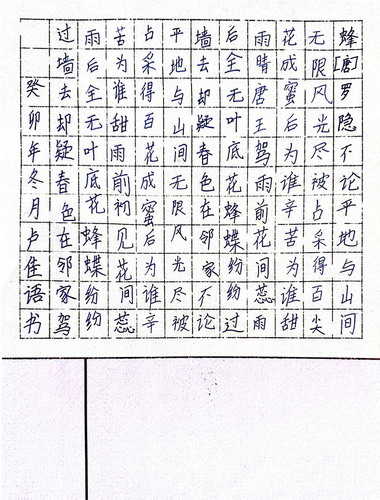 蜂[唐]罗隐不论平地与山间
无限风光尽被占采得百尖
花成蜜后为谁辛苦为谁甜
雨晴唐王驾雨前花间蕊雨
后全无叶底花蜂蝶纷纷过
墙去却疑春色在邻家不论
平地与山间无限风光尽被
占采得百花成蜜后为谁辛
苦为谁甜雨前初见花间蕊
雨后全无叶底花蜂蝶纷纷
过墙去却疑春色在邻家驾
癸卯年冬月卢佳语书